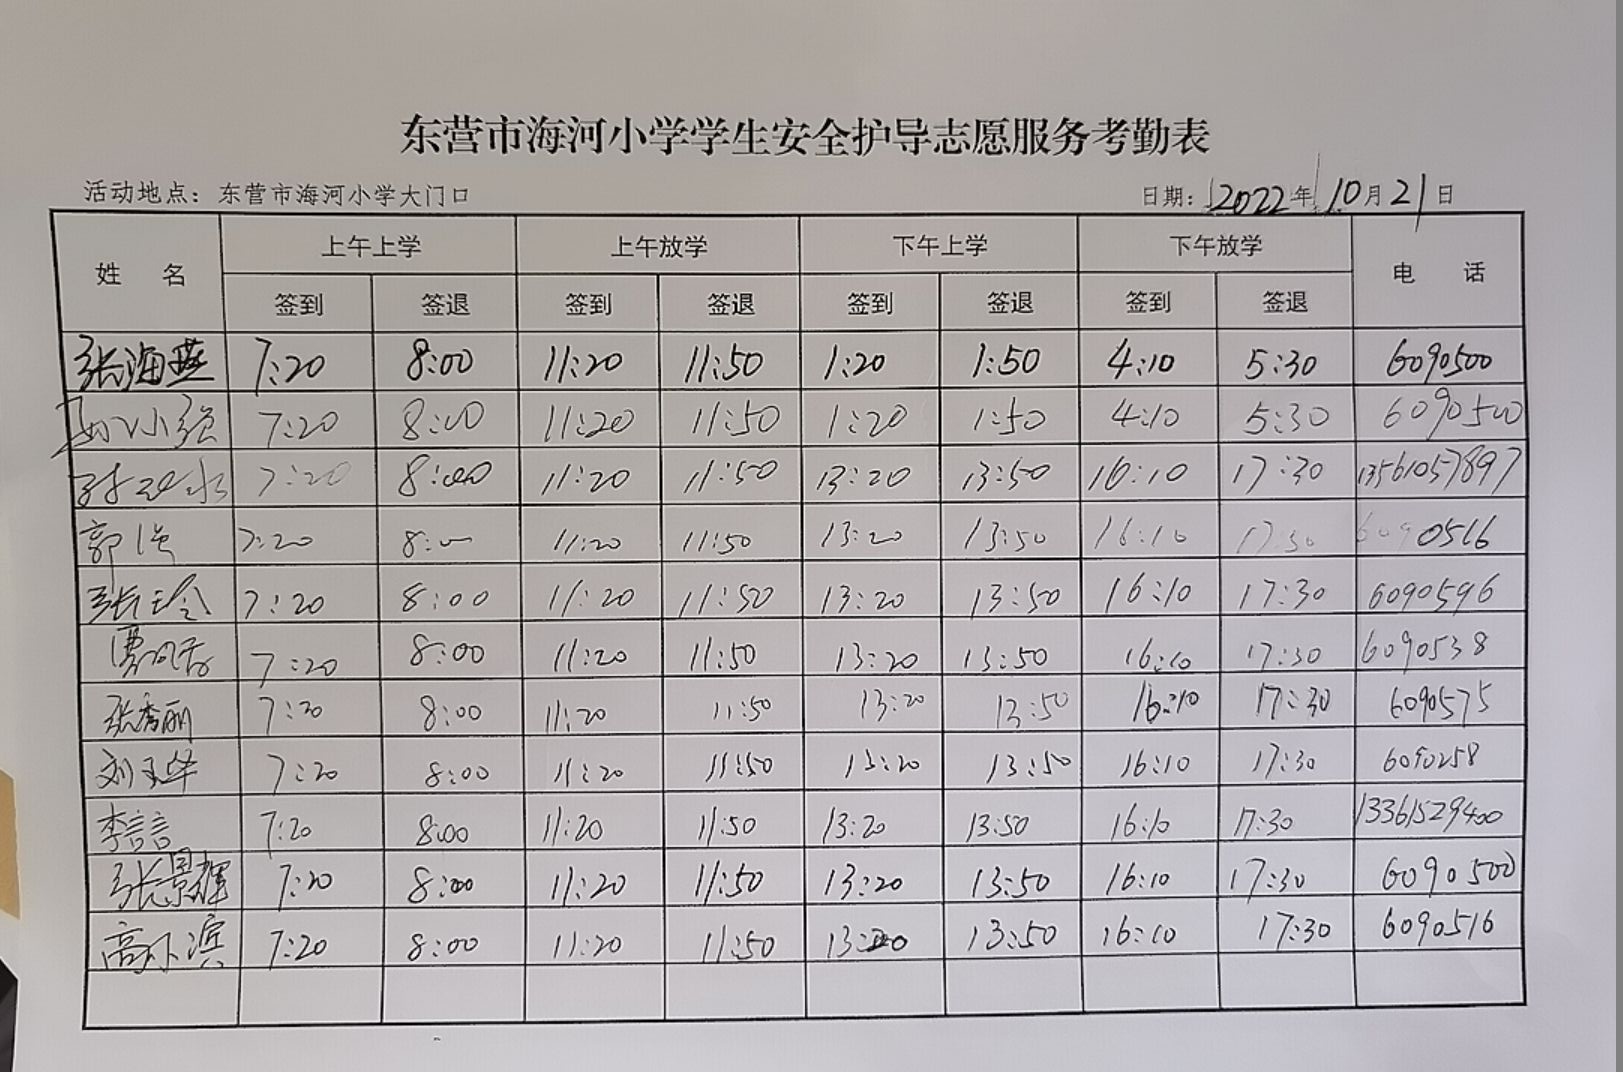 东营市海河小学学生安全护导志愿服务考勤表
活动地点：东营市海河小学大门口 日期：2022年10月21日
姓 名 上午上学 上午放学 下午上学 下午放学 电 话
签到 签退 签到 签退 签到 签退 签到 签退
张海燕 7:20 8:00 11:20 11:50 1:20 1:50 4:10 5:30 6090500
孙小强 7:20 8:00 11:20 11:50 1:20 1:50 4:10 5:30 6090500
7:20 8:00 11:20 11:50 13:20 13:50 16:10 17:30 13561057897
郭强 7:20 8:00 11:20 11:50 13:20 13:50 16:10 17:30 6090516
张玉令 7:20 8:00 11:20 11:50 13:20 13:50 16:10 17:30 6090596
7:20 8:00 11:20 11:50 13:20 13:50 16:10 17:30 6090538
张秀丽 7:20 8:00 11:20 11:50 13:20 13:50 16:10 17:30 6090575
刘玉华 7:20 8:00 11:20 11:50 13:20 13:50 16:10 17:30 6090258
李言言 7:20 8:00 11:20 11:50 13:20 13:50 16:10 17:30 13361529400
张景辉 7:20 8:00 11:20 11:50 13:20 13:50 16:10 17:30 6090500
高小滨 7:20 8:00 11:20 11:50 13:20 13:50 16:10 17:30 6090516